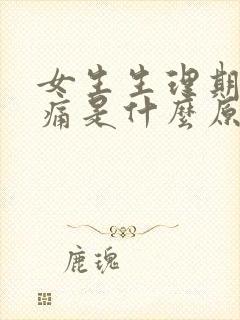 女生生理期
痛是什麼原
鹿瑰